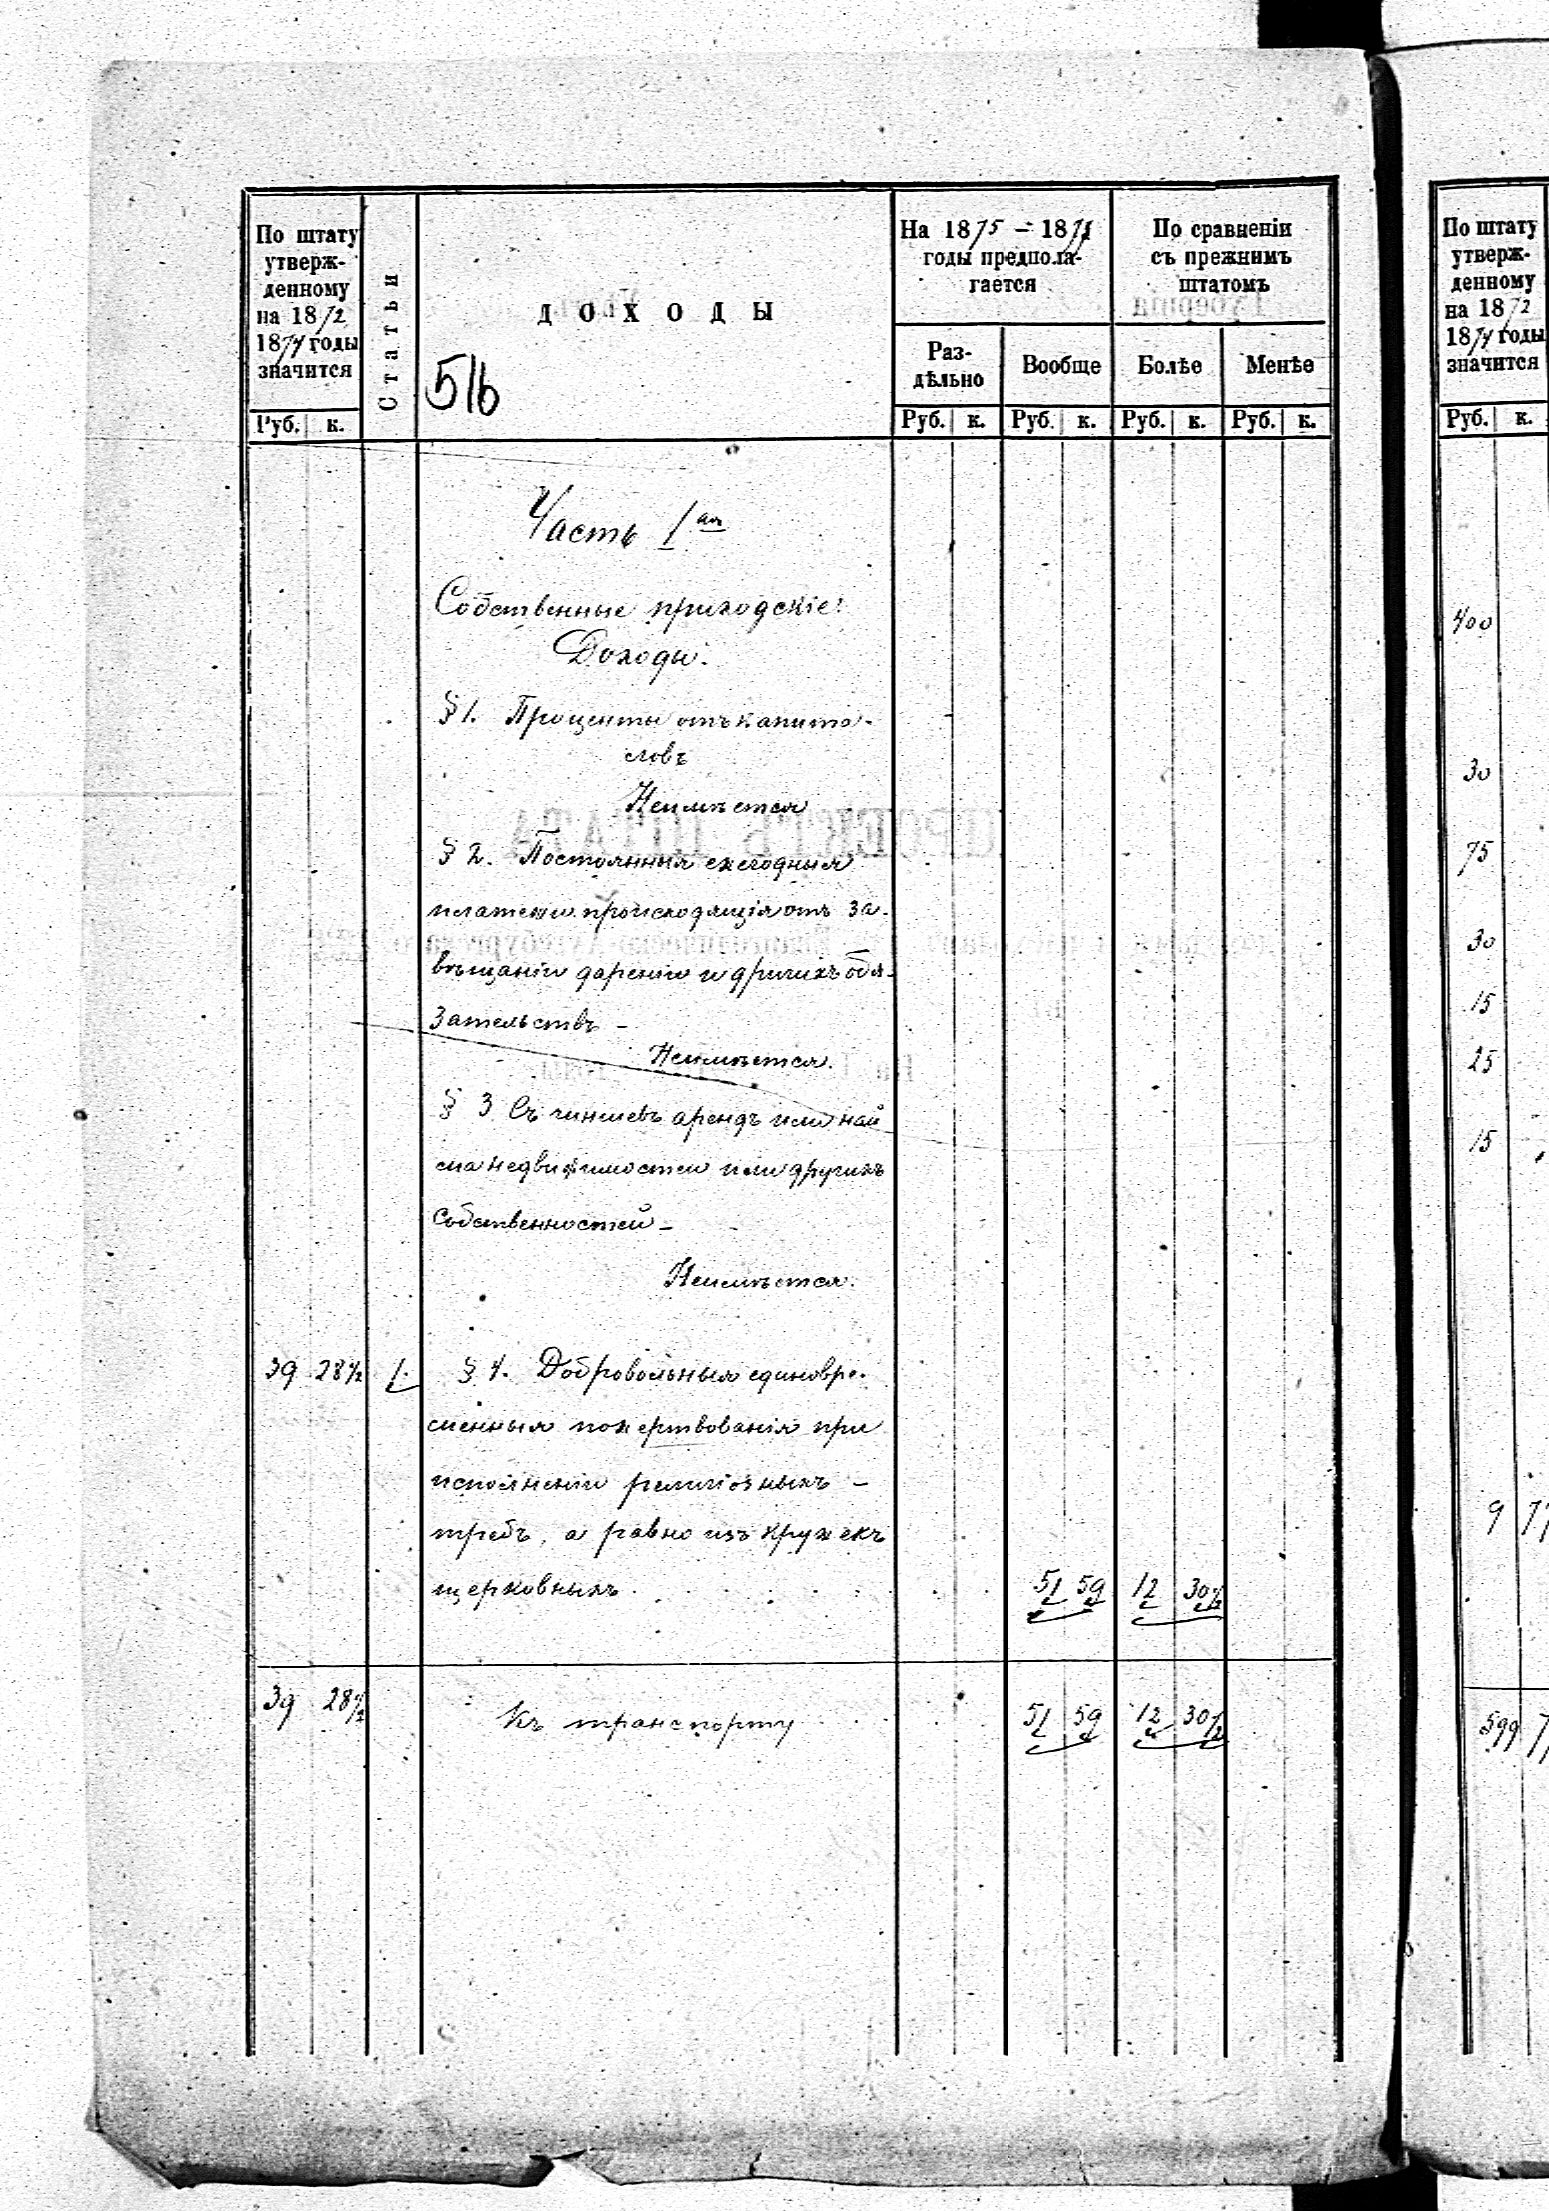 По штату утверж-
денному
на 1872
1874 годы
значится
Руб. к.
Статьи
ДОХОДЫ
516
На 1875 – 1877
годы предпола-
гается
Раз-
дѣльно
Вообще
Руб. к. Руб. к.
По сравненіи
съ прежнимъ
штатомъ
Болѣе Менѣе
Руб. к. Руб. к.
Часть 1ая
Собственные приходскіе
Доходы.
§ 1. Проценты отъ капита-
ловъ
Неимѣется
§ 2. Постоянныя ежегодныя
платежи происходящія отъ за-
вѣщаніи дареніи и другихъ обя-
зательствъ –
Неимѣется.
§ 3 Съ чиншевъ арендъ или най
ма недвижимостеи или другихъ
собственностей –
Неимѣется.
39 28½ 1. § 4. Добровольныя единовре-
менныя пожертвованія при
исполненіи религіозныхъ –
требъ, а равно изъ кружекъ
церковныхъ . . . . . 51 59 12 30½
39 28½ Къ транспорту 51 59 12 30½
По штату
утверж-
денному
на 1872
1874 годы
значится
Руб. к.
400
30
75
30
15
25
15
9
599